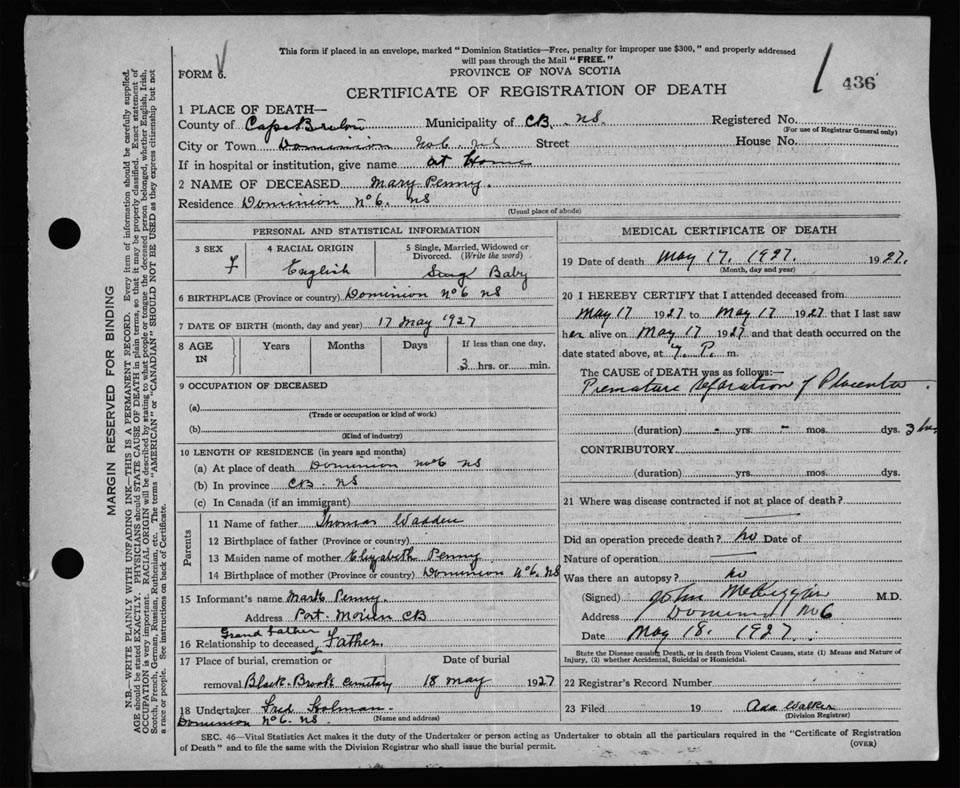 This form if placed in an envelope, marked "Dominion Statistics—Free, penalty for improper use $300," and properly addressed
will pass through the Mail "FREE."
FORM 6.
PROVINCE OF NOVA SCOTIA
436
CERTIFICATE OF REGISTRATION OF DEATH
1 PLACE OF DEATH—
County of Cape Breton Municipality of CB. NS. Registered No.
(For use of Registrar General only)
City or Town Dominion No6. NS Street House No.
If in hospital or institution, give name at Home
2 NAME OF DECEASED Mary Penny.
Residence Dominion No 6. NS
(Usual place of abode)
PERSONAL AND STATISTICAL INFORMATION
3 SEX
F
4 RACIAL ORIGIN
English
5 Single, Married, Widowed or
Divorced. (Write the word)
Sing Baby
6 BIRTHPLACE (Province or country) Dominion No 6 NS
7 DATE OF BIRTH (month, day and year) 17 May 1927
8 AGE
IN
Years Months Days If less than one day,
3 hrs. or min.
9 OCCUPATION OF DECEASED
(a)
(Trade or occupation or kind of work)
(b)
(Kind of industry)
10 LENGTH OF RESIDENCE (in years and months)
(a) At place of death Dominion No6 NS
(b) In province CB. NS
(c) In Canada (if an immigrant)
Parents
11 Name of father Thomas Wadden
12 Birthplace of father (Province or country)
13 Maiden name of mother Elizabeth Penny
14 Birthplace of mother (Province or country) Dominion No 6. NS
15 Informant's name Mark Penny.
Address Port Morien CB
Grand father
16 Relationship to deceased Father.
17 Place of burial, cremation or Date of burial
removal Black Brook Cemetary 18 May 1927
18 Undertaker Fred Holman.
Dominion No 6. NS. (Name and address)
MEDICAL CERTIFICATE OF DEATH
19 Date of death May 17. 1927. 1927.
(Month, day and year)
20 I HEREBY CERTIFY that I attended deceased from
May 17 1927 to May 17 1927 that I last saw
her alive on May 17 1927 and that death occurred on
date stated above, at 7. P. m.
The CAUSE of DEATH was as follows:—
Premature Separation of Placenta.
(duration) - yrs. - mos. dys. 3 hrs
CONTRIBUTORY.
(duration) yrs. mos. dys.
21 Where was disease contracted if not at place of death?
Did an operation precede death? No Date of
Nature of operation
Was there an autopsy? No
(Signed) John M.D.
Address Dominion No6
Date May 18. 1927.
State the Disease causing Death, or in death from Violent Causes, state (1) Means and Nature of
Injury, (2) whether Accidental, Suicidal or Homicidal.
22 Registrar's Record Number
23 Filed 19 Ada Walker
(Division Registrar)
SEC. 46—Vital Statistics Act makes it the duty of the Undertaker or person acting as Undertaker to obtain all the particulars required in the "Certificate of Registration
of Death" and to file the same with the Division Registrar who shall issue the burial permit.
(OVER)
MARGIN RESERVED FOR BINDING
N.B.—WRITE PLAINLY WITH UNFADING INK—THIS IS A PERMANENT RECORD. Every item of information should be carefully supplied.
AGE should be stated EXACTLY. PHYSICIANS should STATE CAUSE OF DEATH in plain terms, so that it may be properly classified. Exact statement of
OCCUPATION is very important. RACIAL ORIGIN will be described by stating to what people or tongue the deceased person belonged, whether English, Irish,
Scotch, French, German, Russian, Ruthenian, etc. The terms "AMERICAN" or "CANADIAN" SHOULD NOT BE USED as they express citizenship but not
a race or people. See instructions on back of Certificate.